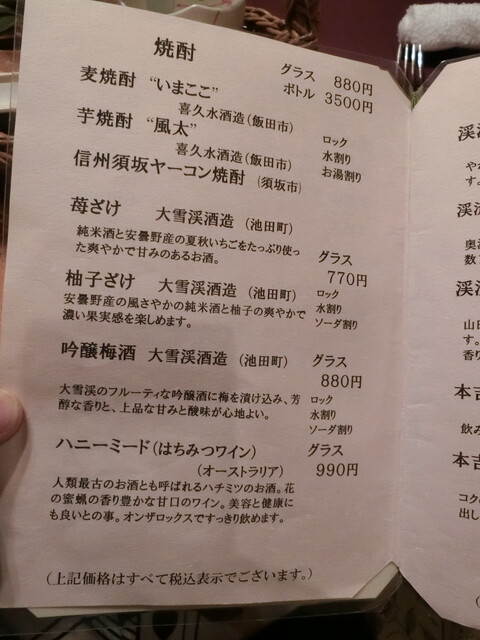 焼酎
グラス 880円
ボトル 3500円
麦焼酎 “いまここ”
喜久水酒造(飯田市)
芋焼酎 “風太”
喜久水酒造(飯田市)
信州須坂ヤーコン焼酎 (須坂市)
ロック
水割り
お湯割り
苺ざけ 大雪渓酒造(池田町)
純米酒と安曇野産の夏秋いちごをたっぷり使っ
た爽やかで甘みのあるお酒。
グラス
770円
柚子ざけ 大雪渓酒造(池田町)
安曇野産の風さやかの純米酒と柚子の爽やかで
濃い果実感を楽しめます。
ロック
水割り
ソーダ割り
吟醸梅酒 大雪渓酒造(池田町)
グラス
880円
大雪渓のフルーティな吟醸酒に梅を漬け込み、芳
醇な香りと、上品な甘みと酸味が心地よい。
ロック
水割り
ソーダ割り
ハニーミード(はちみつワイン)
(オーストラリア)
グラス
990円
人類最古のお酒とも呼ばれるハチミツのお酒。花
の蜜蝋の香り豊かな甘口のワイン。美容と健康に
も良いとの事。オンザロックですっきり飲めます。
(上記価格はすべて税込表示でございます。)
渓
やな
す。
渓
奥深
数
渓
山田
す。
香り
本吉
飲み
本吉
コク
出し